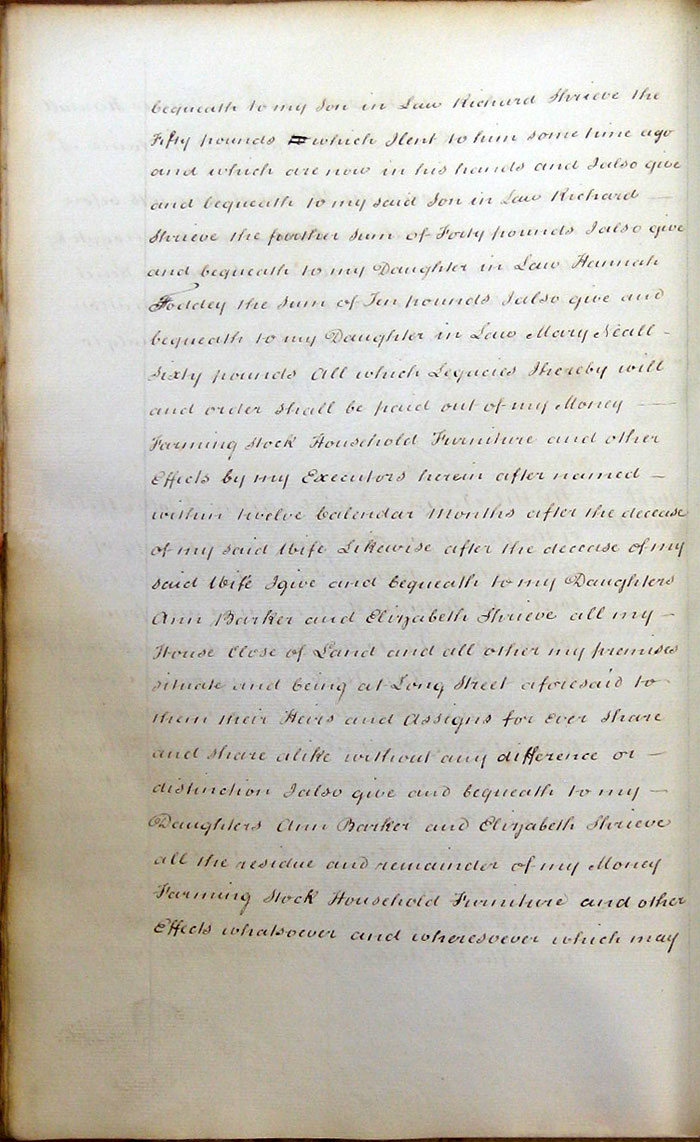 bequeath to my Son in Law Richard Shrieve the
Fifty pounds which I lent to him some time ago
and which are now in his hands and I also give
and bequeath to my said Son in Law Richard —
Shrieve the further Sum of Forty pounds I also give
and bequeath to my Daughter in Law Hannah
Foddey the Sum of Ten pounds I also give and
bequeath to my Daughter in Law Mary Neall -
Sixty pounds All which Legacies I hereby will
and order shall be paid out of my Money —
Farming Stock Household Furniture and other
Effects by my Executors herein after named —
within twelve Calendar Months after the decease
of my said Wife Likewise after the decease of my
said Wife I give and bequeath to my Daughters
Ann Barker and Elizabeth Shrieve all my —
House Close of Land and all other my premises
situate and being at Long Street aforesaid to
them their Heirs and Assigns for ever share
and share alike without any difference or —
distinction I also give and bequeath to my —
Daughters Ann Barker and Elizabeth Shrieve
all the residue and remainder of my Money
Farming Stock Household Furniture and other
Effects whatsoever and wheresoever which may